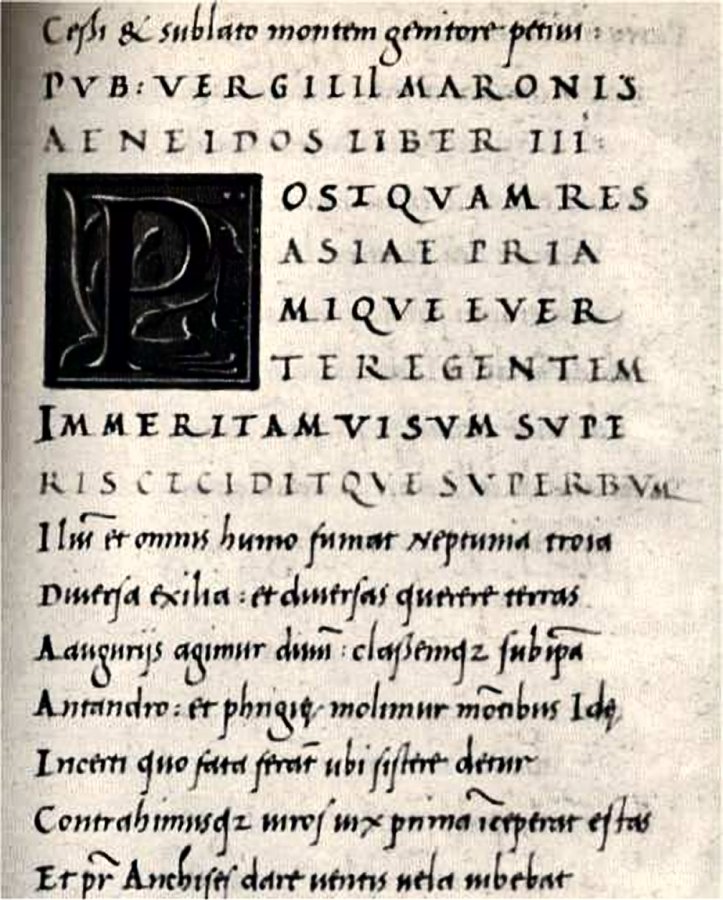 Cessi & sublato montem genitore petiui :
PVB: VERGILII MARONIS
AENEIDOS LIBER III:
POSTQVAM RES
ASIAE PRIA
MIQVE EVER
TERE GENTEM
IMMERITAM VISVM SVPE
RIS CECIDITQVE SVPERBVM
Iliū et omnis humo fumat Neptunia troia
Diuersa exilia : et diuersas querere terras
Aaugurijs agimur diuū : classemqꝫ sub ipā
Antandro : et phrigię molimur mōtibus Idę
Incerti quo fata ferāt ubi sistere detur
Contrahimusqꝫ uiros uix prima īceperat estas
Et pr̄ Anchises dare uentis uela iubebat